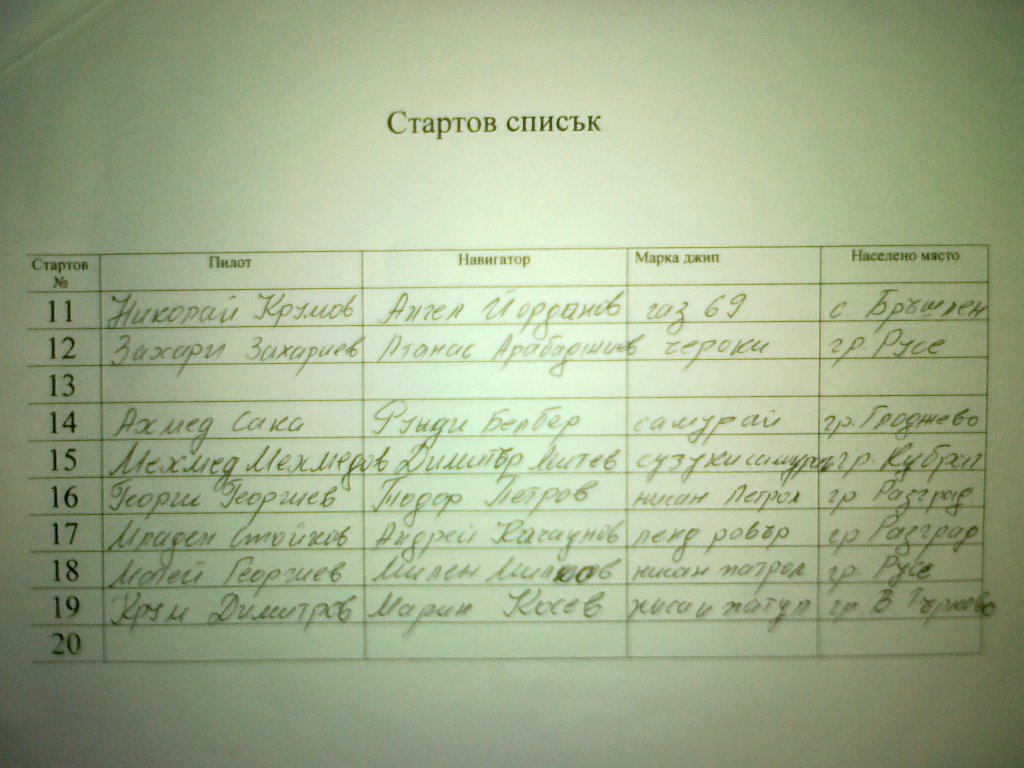 Стартов списък
Стартов № Пилот Навигатор Марка джип Населено място
11 Николай Крумов Ангел Йорданов газ 69 с. Бръшлен
12 Захари Захариев Атанас Арабаджиев чероки гр. Русе
13
14 Ахмед Сака Рунди Бербер самурай гр. Глоджево
15 Мехмед Мехмедов Димитър Митев сузуки самурай гр. Кубрат
16 Георги Георгиев Тодор Петров нисан Петрол гр Разград
17 Младен Стойков Андрей Качаунов ленд ровър гр Разград
18 Матей Георгиев Милен нисан патрол гр. Русе
19 Крум Димитров Марин Косев нисан гр. В Търново
20